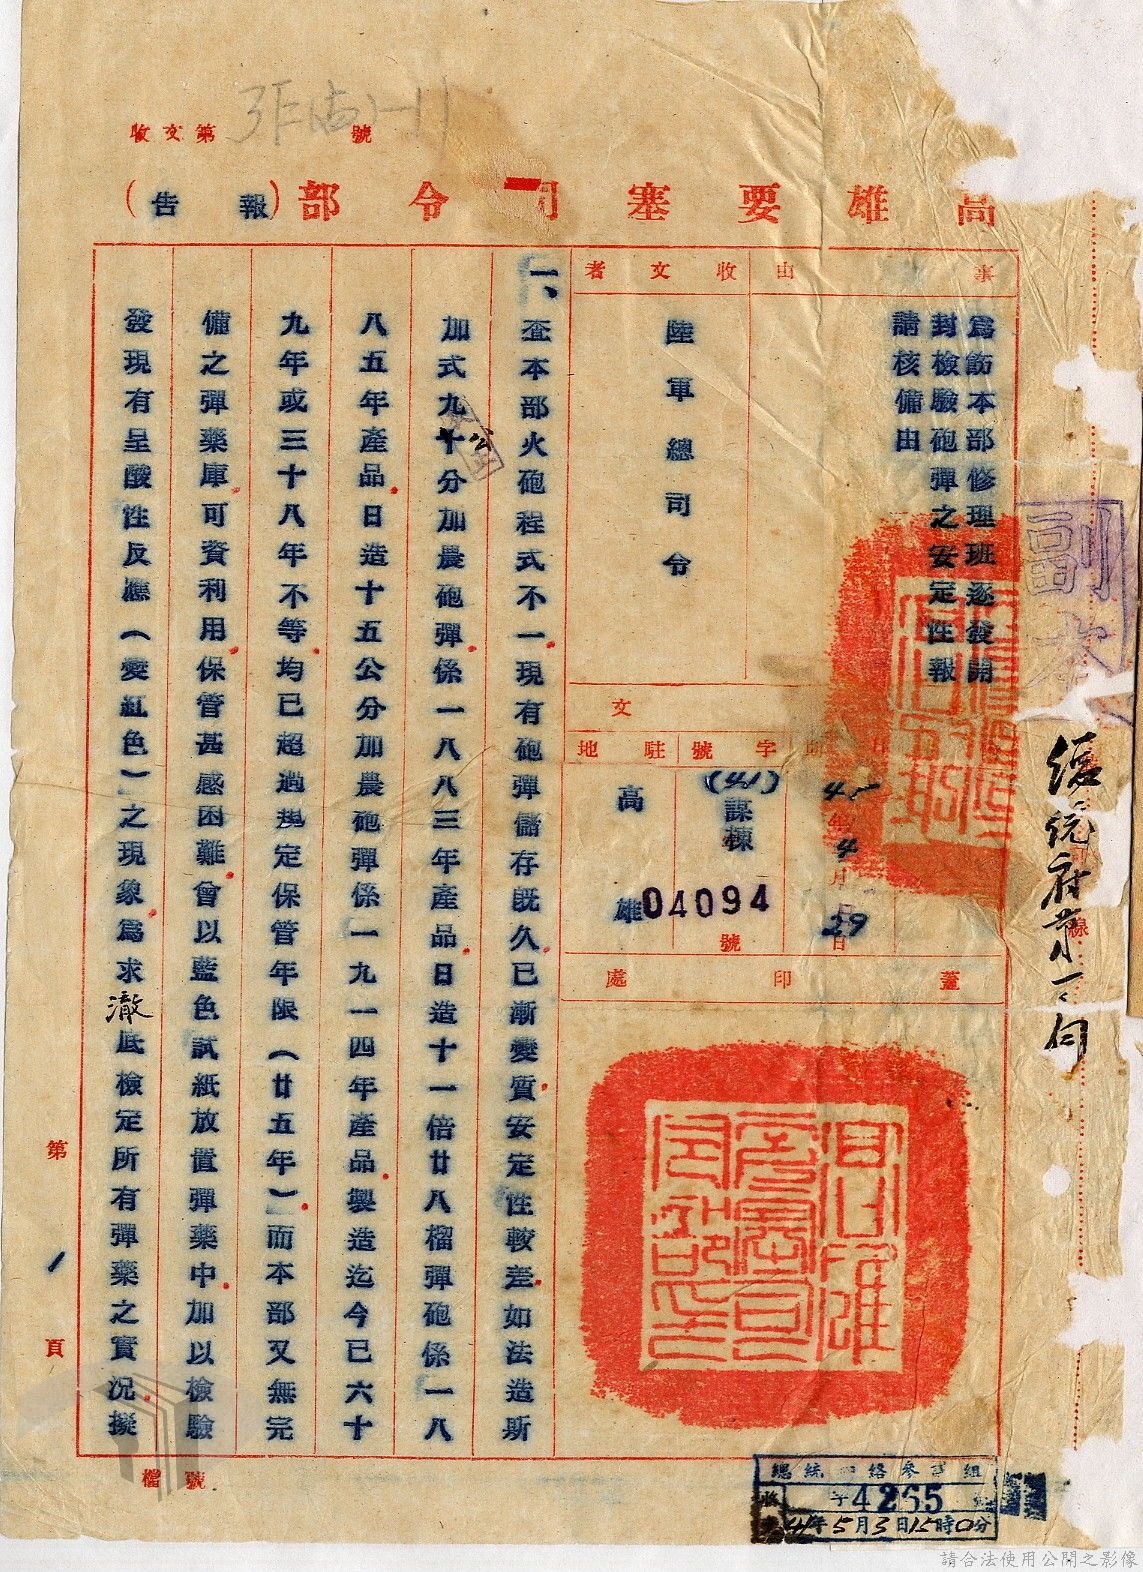 收文第 號
高雄要塞司令部(報告)
事由
為飭本部修理班逐發開
封檢驗砲彈之安定性報
請核備由
收文者
陸軍總司令
文
字號
駐地
41年4月29日
(41)謀棟
04094
號
高雄
蓋印處
高雄要塞司令部
一、查本部火砲程式不一現有砲彈儲存既久已漸變質安定性較差如法造斯
加式九公分加農砲彈係一八八三年產品日造十一倍廿八榴彈砲係一八
八五年產品日造十五公分加農砲彈係一九一四年產品製造迄今已六十
九年或三十八年不等均已超過規定保管年限(廿五年)而本部又無完
備之彈藥庫可資利用保管甚感困難曾以藍色試紙放置彈藥中加以檢驗
發現有呈酸性反應(變紅色)之現象為求澈底檢定所有彈藥之實況擬
第1頁
檔號
副本
總統府第一局
線
總統 絡參 組
收 字4265號
41年5月3日15時0分
請合法使用公開之影像